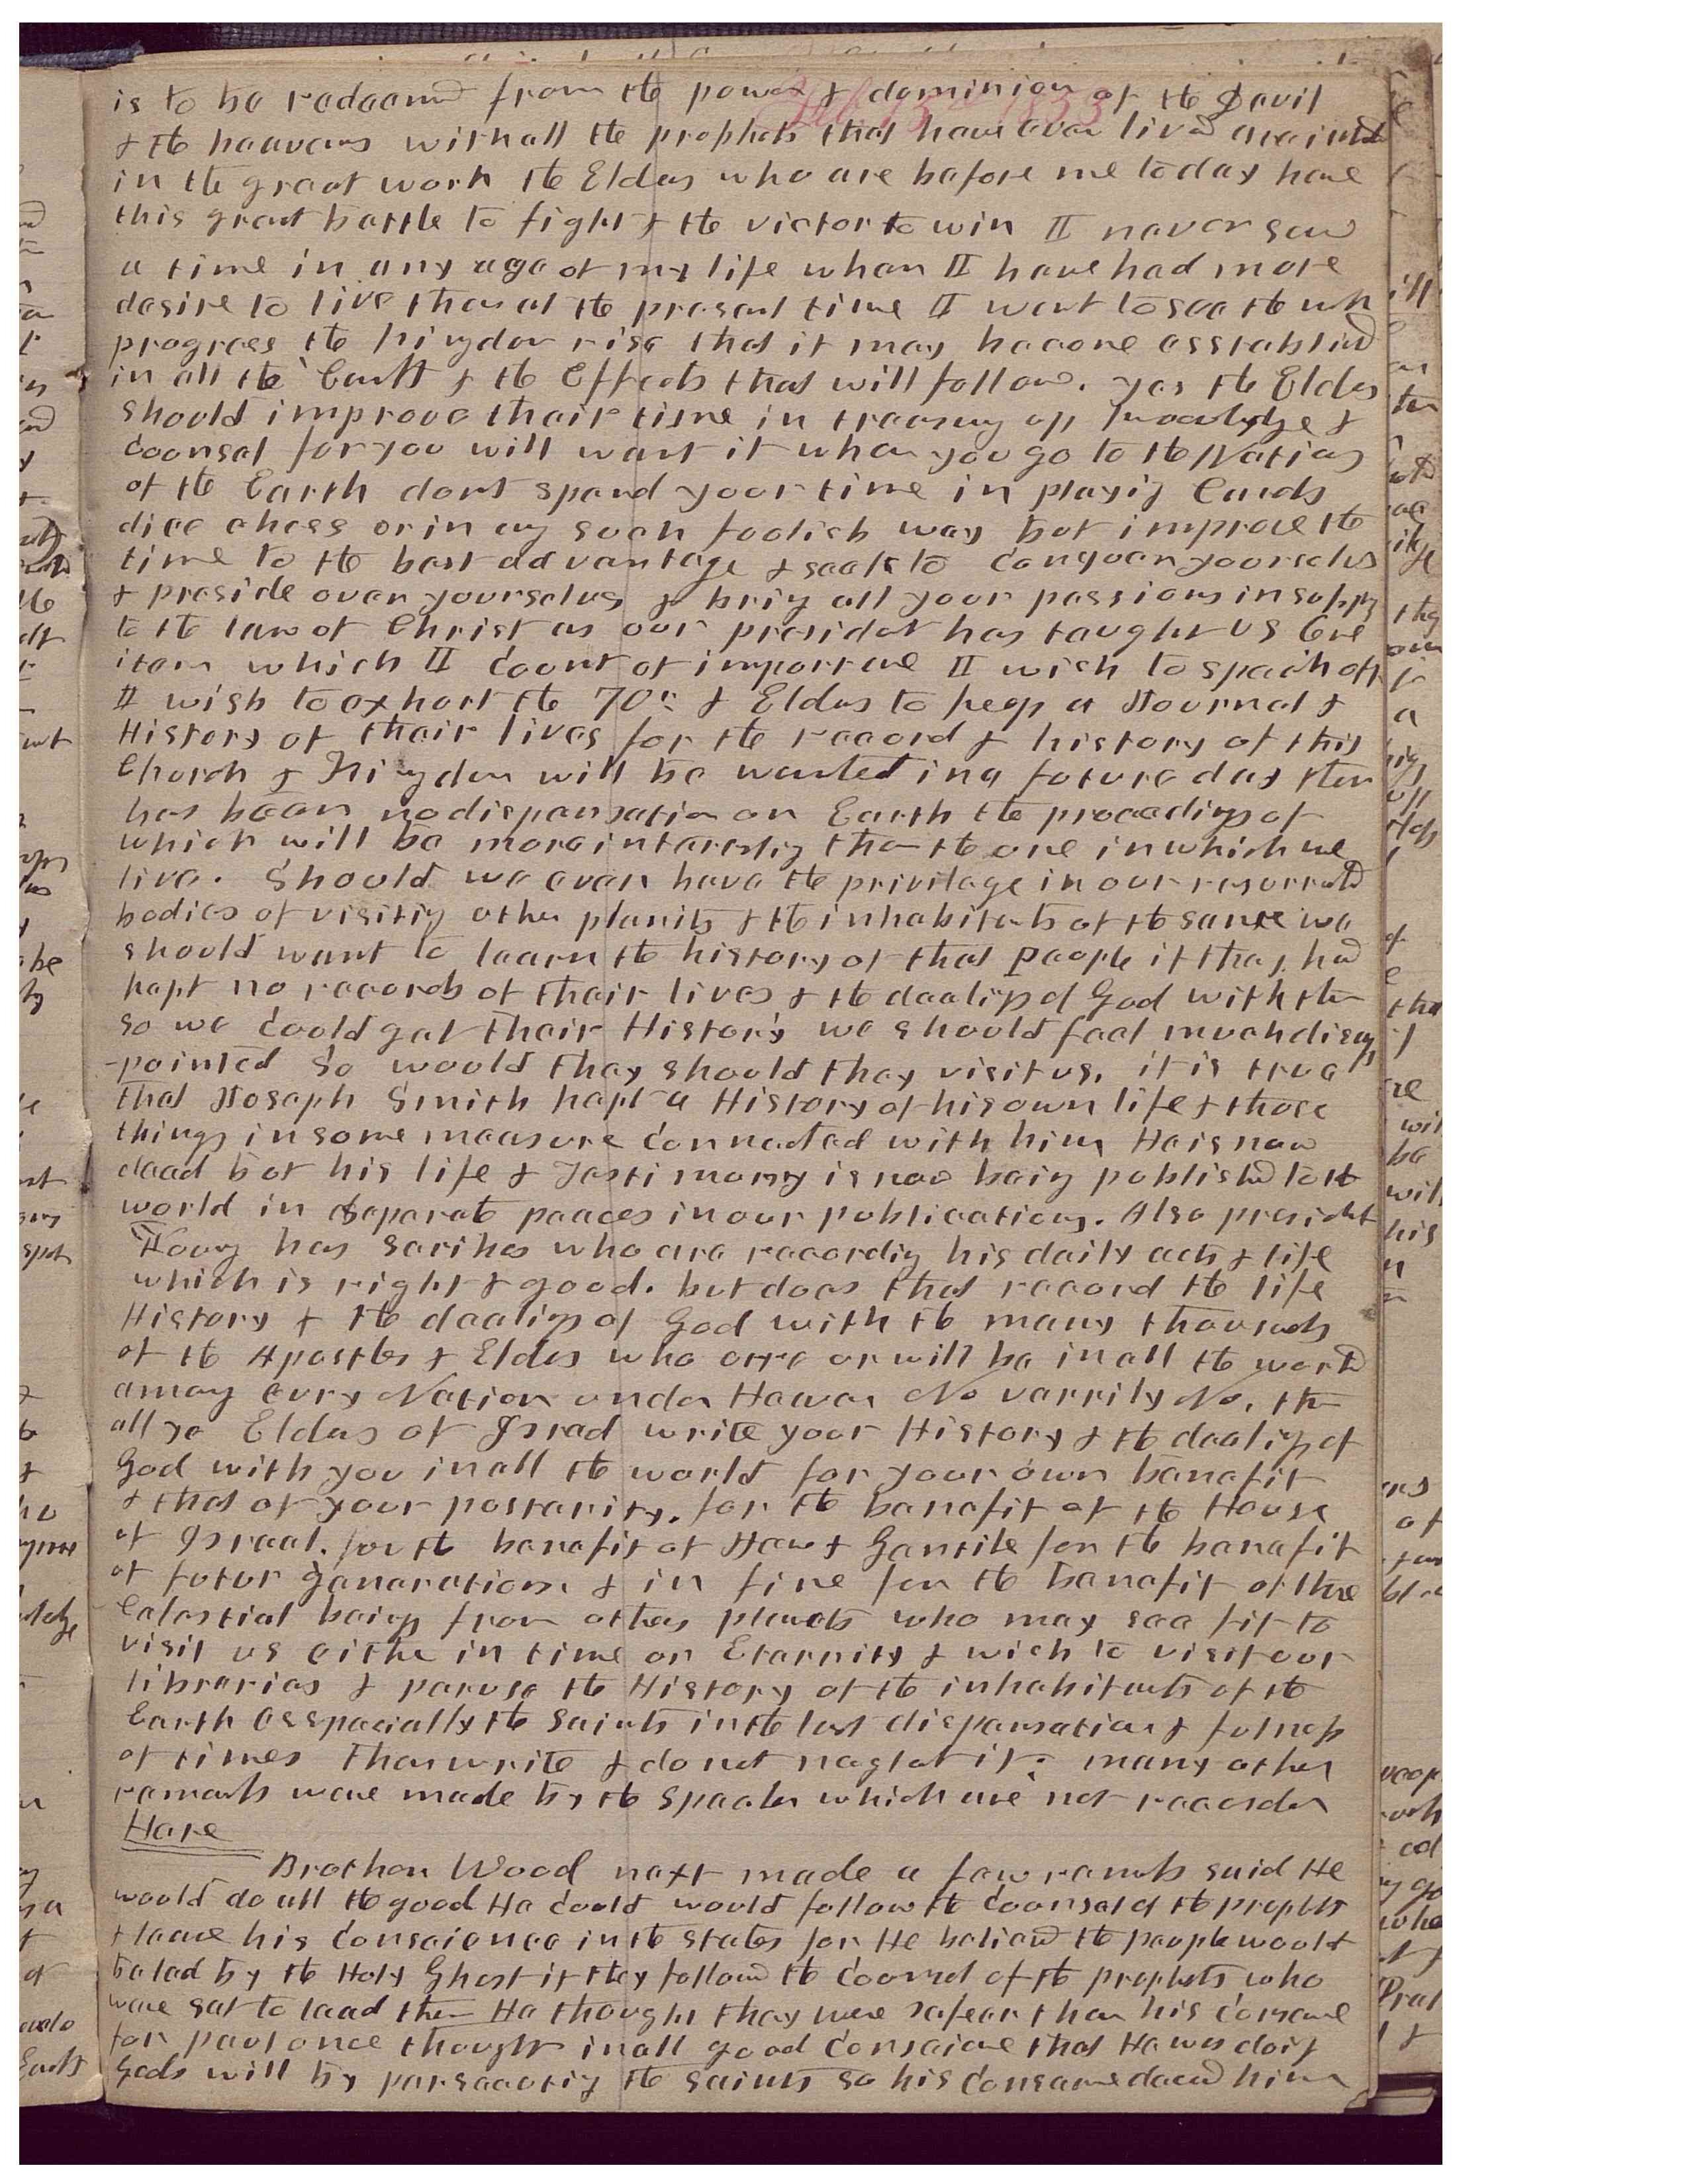 is to be redeemed from the power & dominion of the Devil
& the heavens with all the prophets that have ever lived are united
in the great work the Elders who are before me to day have
this great battle to fight & the victor to win I never saw
a time in any age of my life when I have had more
desire to live than at the present time I want to see the wh
progress the kingdom rise that it may become esstablished
in all the Earth & the Effects that will follow. yes the Elders
should improve their time in treasuring up knowledge &
Counsel for you will want it when you go to the Nations
of the Earth dont spend your time in playing Cards
dice chess or in any such foolish way but improve the
time to the best advantage & seek to Conquer yourselves
& preside over yourselves & bring all your passions in subje
to the law of Christ as our presidet has taught us One
item which I Count of importance I wish to speak off
I wish to exhort the 70s & Elders to keep a Journal &
History of their lives for the record & history of this
Church & Kingdom will be wanted in a future day ther
has been no dispensation on Earth the proceedings of
which will be more interesting than the one in which we
live. Should we ever have the privilege in our resurrected
bodies of visiting other planits & the inhabitants of the same we
should want to learn the history of that people if they had
kept no records of their lives & the dealings of God with them
so we Could get their History we should feel much disap
-pointed So would they should they visit us. it is true
that Joseph Smith kept a History of his own life & those
things in some measure Connected with him He is now
dead but his life & Testimony is now being published to the
world in separate peaces in our publications. Also president
Young has scribes who are recording his daily acts & life
which is right & good. but does that record the life
History & the dealings of God with the many thousands
of the Apostles & Elders who are or will be in all the world
among evry Nation under Heaven No verrily No, then
all ye Elders of Israel write your History & the dealings of
God with you in all the world for your own benefit
& that of your posterity. for the benefit of the House
of Israel. for the benefit of Jew & Gentile for the benefit
of futur generations & in fine for the benefit of those
Celestial beings from other planets who may see fit to
visit us either in time or Eternity & wish to visit our
libraries & peruse the History of the inhabitants of the
Earth Esspecially the Saints in the last dispensation & fulness
of times Then write & do not neglet it: many other
remarks were made by the Speaker which are not recorded
Here
Brother Wood next made a few remarks said He
would do all the good He Could would follow the Counsel of the prophets
& leave his Conscience in the States for He believed the people would
be led by the Holy Ghost if they followed the Counsel of the prophets who
were set to lead them He thought they were safer than his Consience
for paul once thought in all good Consience that He was doing
Gods will by persecuting the saints so his Consience deceived him